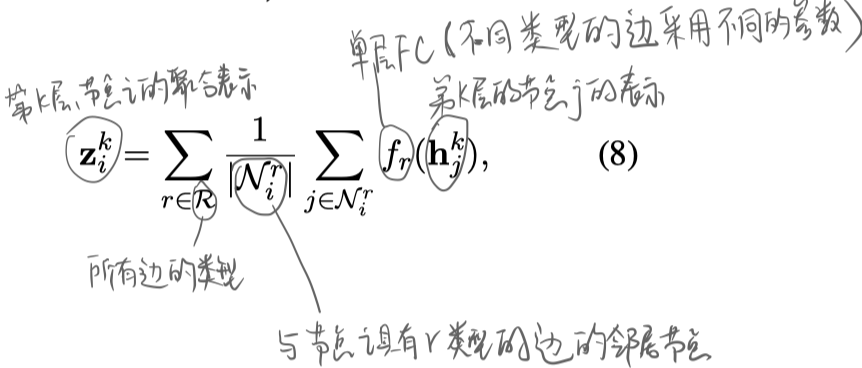 单层FC(不同类型的边采用不同的参数)
第k层,节点i的聚合表示
第k层的节点j的表示
$\mathbf{z}_i^k = \sum_{r \in \mathcal{R}} \frac{1}{|\mathcal{N}_i^r|} \sum_{j \in \mathcal{N}_i^r} f_r(\mathbf{h}_j^k),$ (8)
所有边的类型
与节点i具有r类型的边的邻居节点